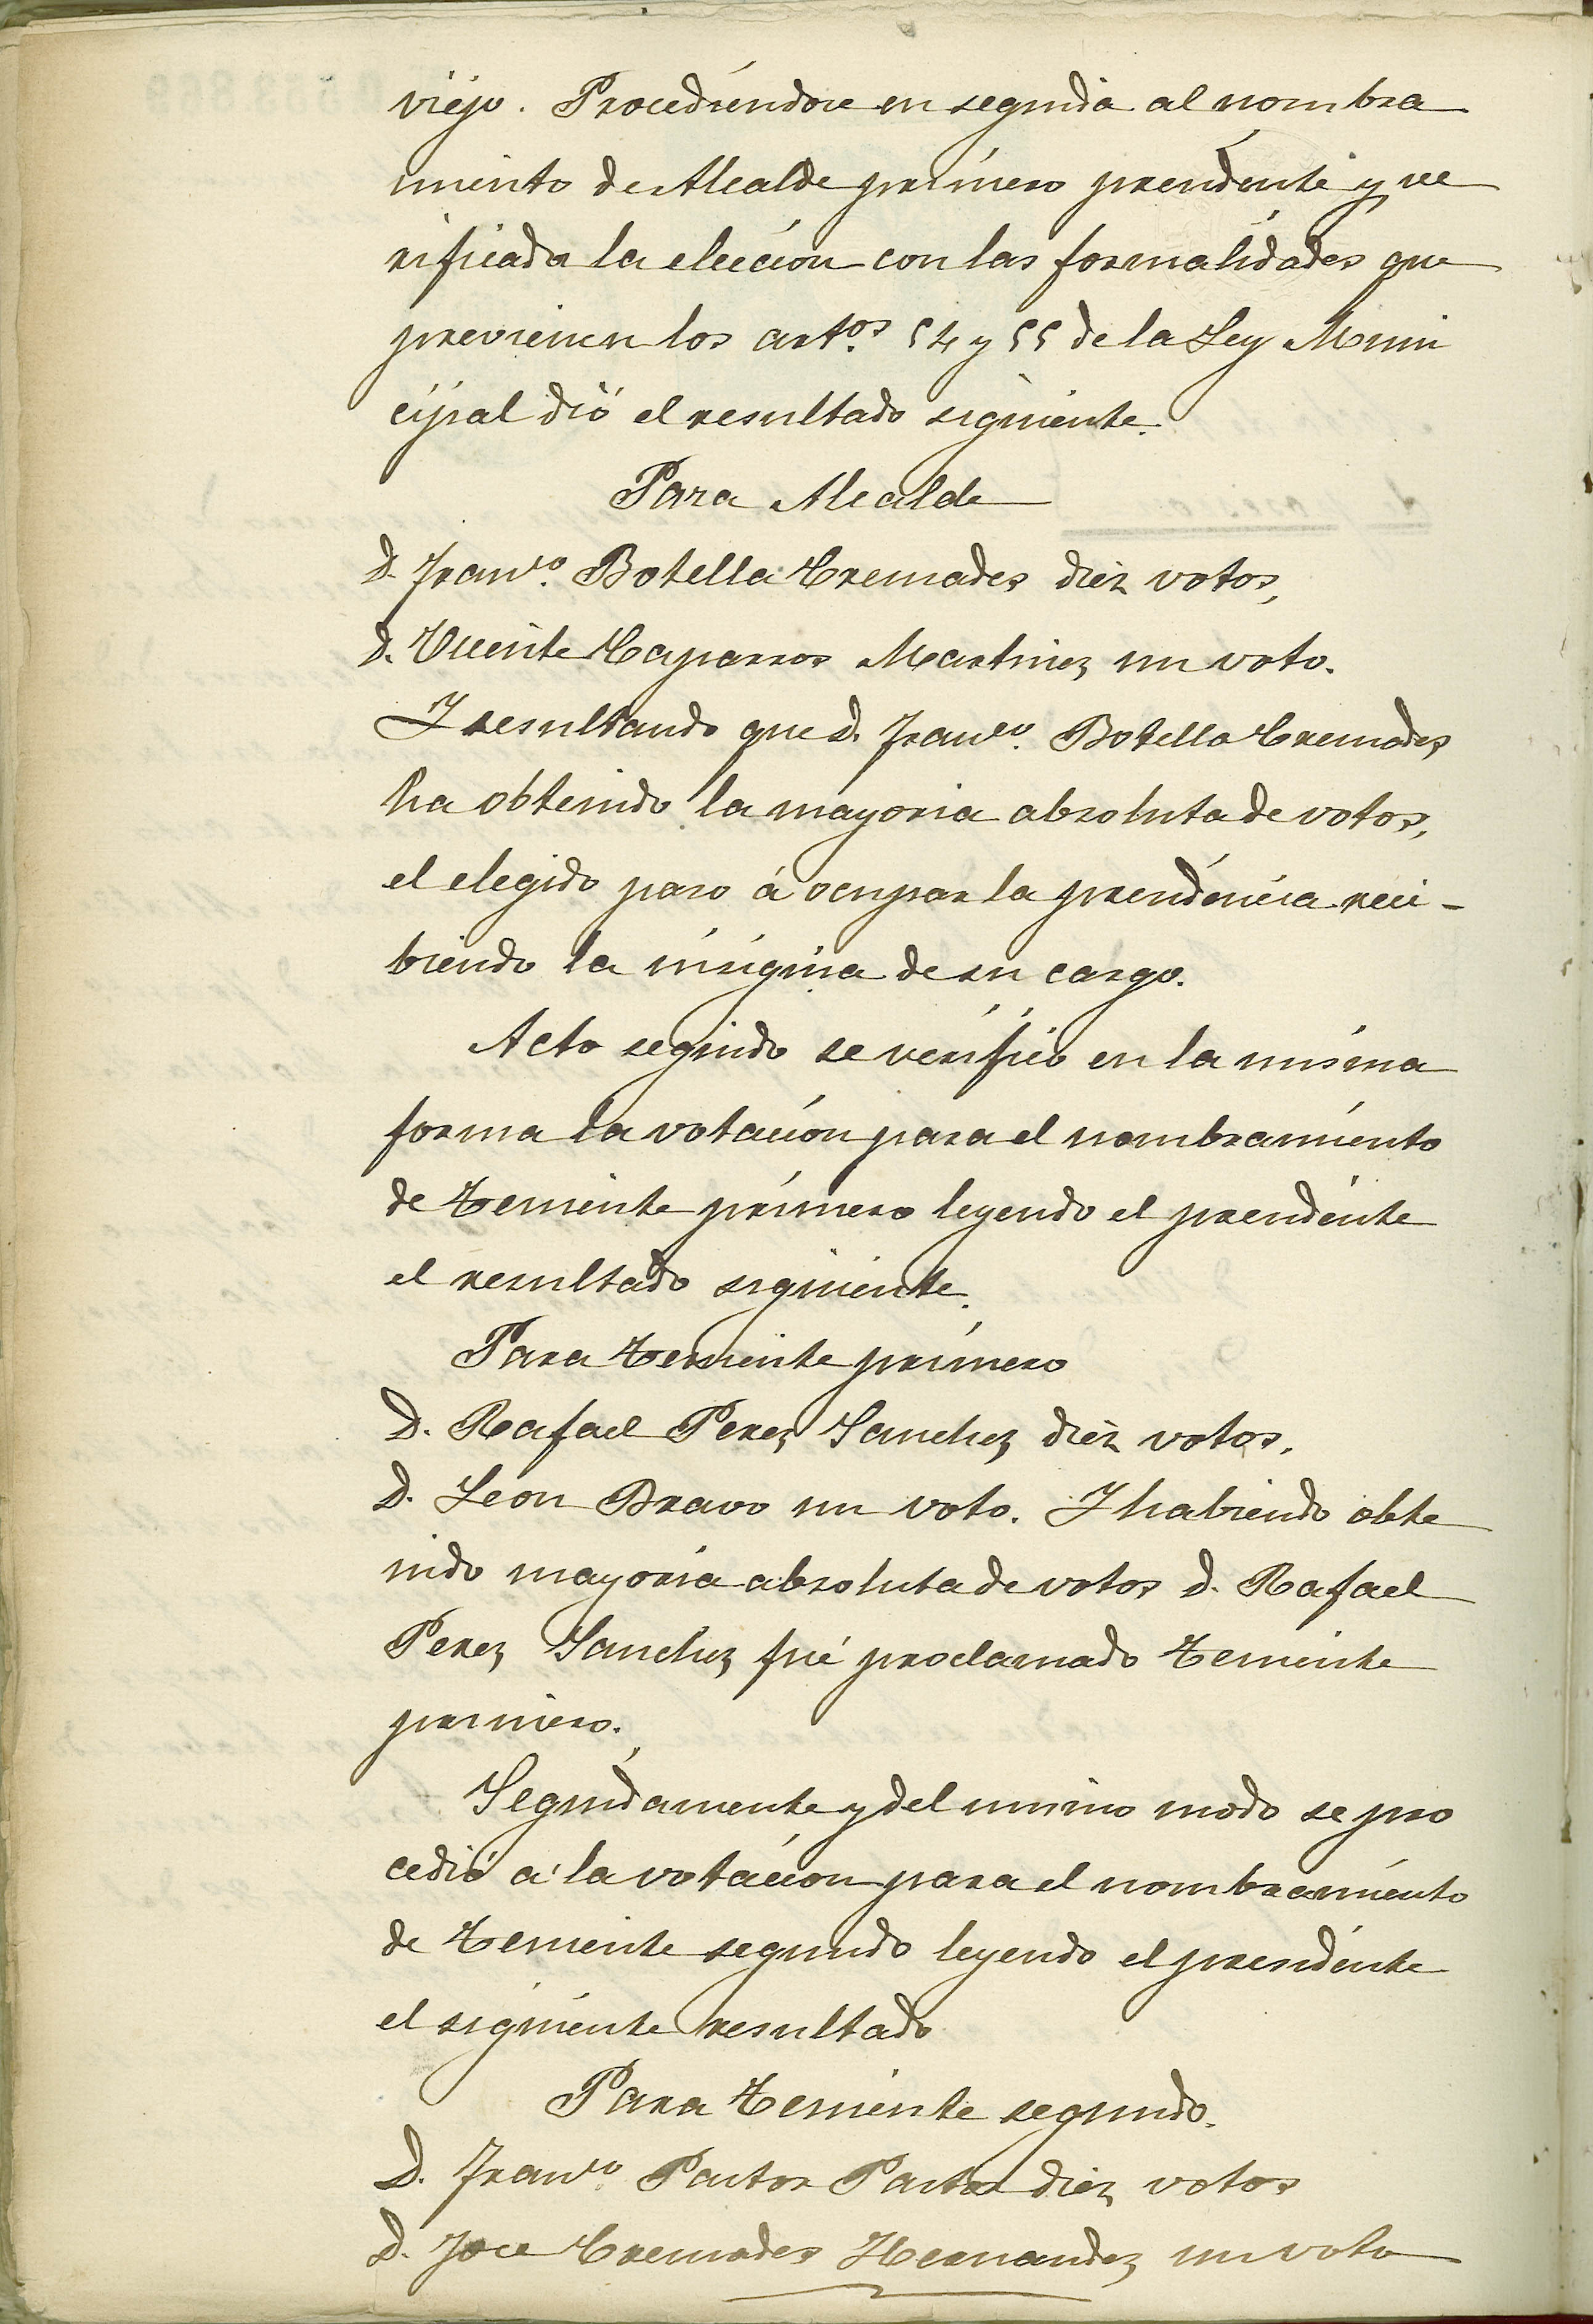 viejo. Procediendose en seguida al nombra
miento de Alcalde primero presidente y ve
rificada la eleccion con las formalidades que
previenen los artos. 54 y 55 de la Ley Muni
cipal dió el resultado siguiente.
Para Alcalde
D. Franco. Botella Cremades diez votos,
D. Vicente Caparros Martinez un voto.
Y resultando que D. Franco. Botella Cremades
ha obtenido la mayoria absoluta de votos,
el elegido paso á ocupar la presidencia reci-
biendo la insignia de su cargo.
Acto seguido se verificó en la misma
forma la votacion para el nombramiento
de Teniente primero leyendo el presidente
el resultado siguiente.
Para Teniente primero
D. Rafael Perez Sanchez diez votos.
D. Leon Bravo un voto. Y habiendo obte
nido mayoria absoluta de votos D. Rafael
Perez Sanchez fué proclamado Teniente
primero.
Segundamente y del mismo modo se pro
cedió á la votacion para el nombramiento
de Teniente segundo leyendo el presidente
el siguiente resultado
Para Teniente segundo.
D. Franco. Pastor Pastor diez votos
D. Jose Cremades Hernandez un voto